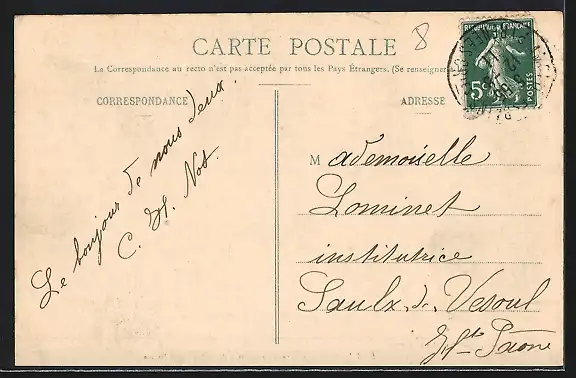 8
CARTE POSTALE
La Correspondance au recto n'est pas acceptée par tous les Pays Étrangers. (Se renseigner
CORRESPONDANCE
ADRESSE
REPUBLIQUE FRANÇAISE
5c
POSTES
Le bonjour de nous deux.
C. H. Not.
Mademoiselle
Lominet
institutrice
Saulx de Vesoul
Hte Saône